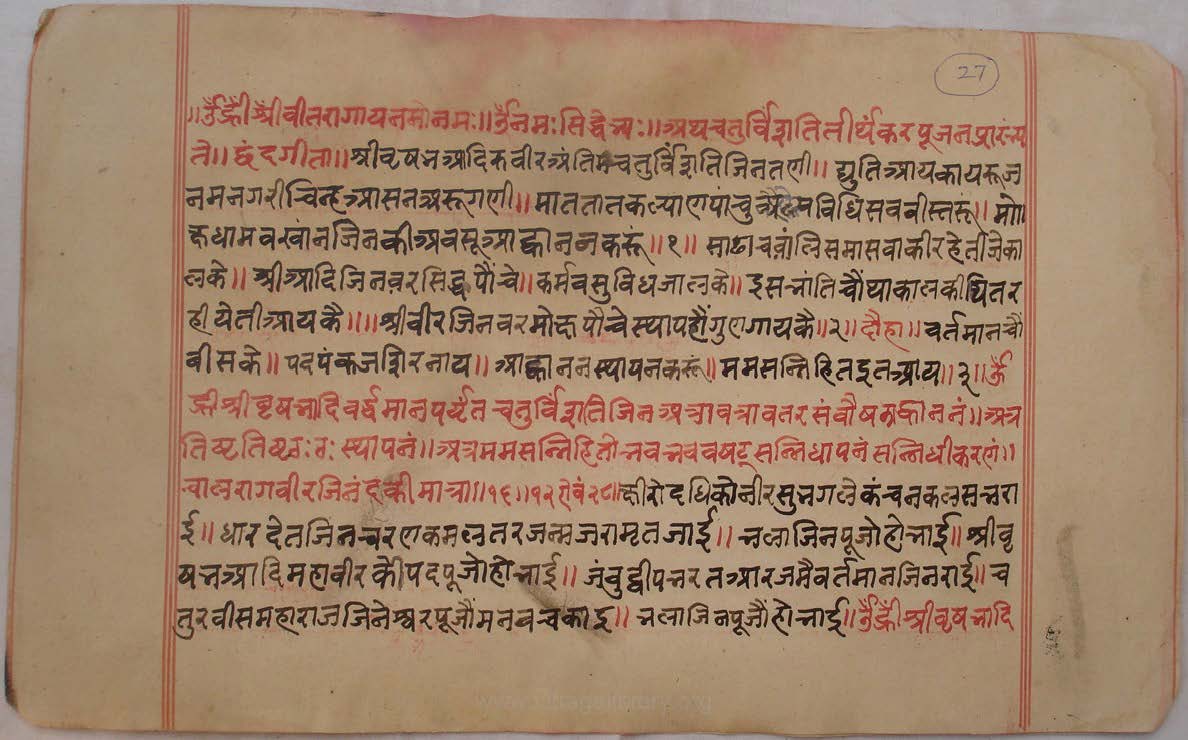 27
॥ॐह्रीँश्रीवीतरागायनमोनमः॥ॐनमःसिद्धेभ्यः॥अथचतुर्विंशतितीर्थंकरपूजनप्रारंभ्य
ते॥छंदगीता॥श्रीवृषभआदिकवीरअंतिमचतुर्विंशतिजिनतणी॥द्युतिआयकायरूज
नमनगरीचिन्हआसनअरूगणी॥माततातकल्याणपांचु विधिसबबीस्तरूं॥मो
क्षधामवखांनजिनकीअबसूआह्वाननकरूं॥१॥साढाचवांलिसमासबाकीरहेतीजेका
लके॥श्रीआदिजिनवरसिद्धपौंचे॥कर्मवसुविधजालके॥इसभांतिचौंथाकालकीथितर
हीयेतीआयकै॥॥श्रीवीरजिनवरमोक्षपौंचेस्थापहौंगुणगायकै॥२॥दौहा॥वर्तमानचौं
वीसके॥पदपंकजशिरनाय॥आह्वाननस्थापनकरूं॥ममसन्निहितइतआय॥३॥ॐ
ह्रीश्रीवृषभादिवर्द्धमानपर्य्यंतचतुर्विंशतिजिनअत्रावत्रावतरसंवौषट्आह्वाननं॥अत्र
तिष्टतिष्टठःठःस्थापनं॥अत्रममसन्निहितोभवभववषट्सन्निधापनंसन्निधीकरणं॥
चालरागवीरजिनंदकीमात्रा॥१६॥१२ऐवं२८॥क्षीरोदधिकोनीरसुभगलेकंचनकलसभरा
ई॥धारदेतजिनचरणकमलतरजन्मजरामृतजाई॥भलाजिनपूजोहोभाई॥श्रीवृ
षभआदिमहावीरकेपदपूजोहोभाई॥जंबुद्वीपभरतआरजमैवर्तमानजिनराई॥च
तुरवीसमहाराजजिनेश्वरपूजौंमनवचकाइ॥भलाजिनपूजौंहोभाई॥ॐह्रीँश्रीवृषभादि